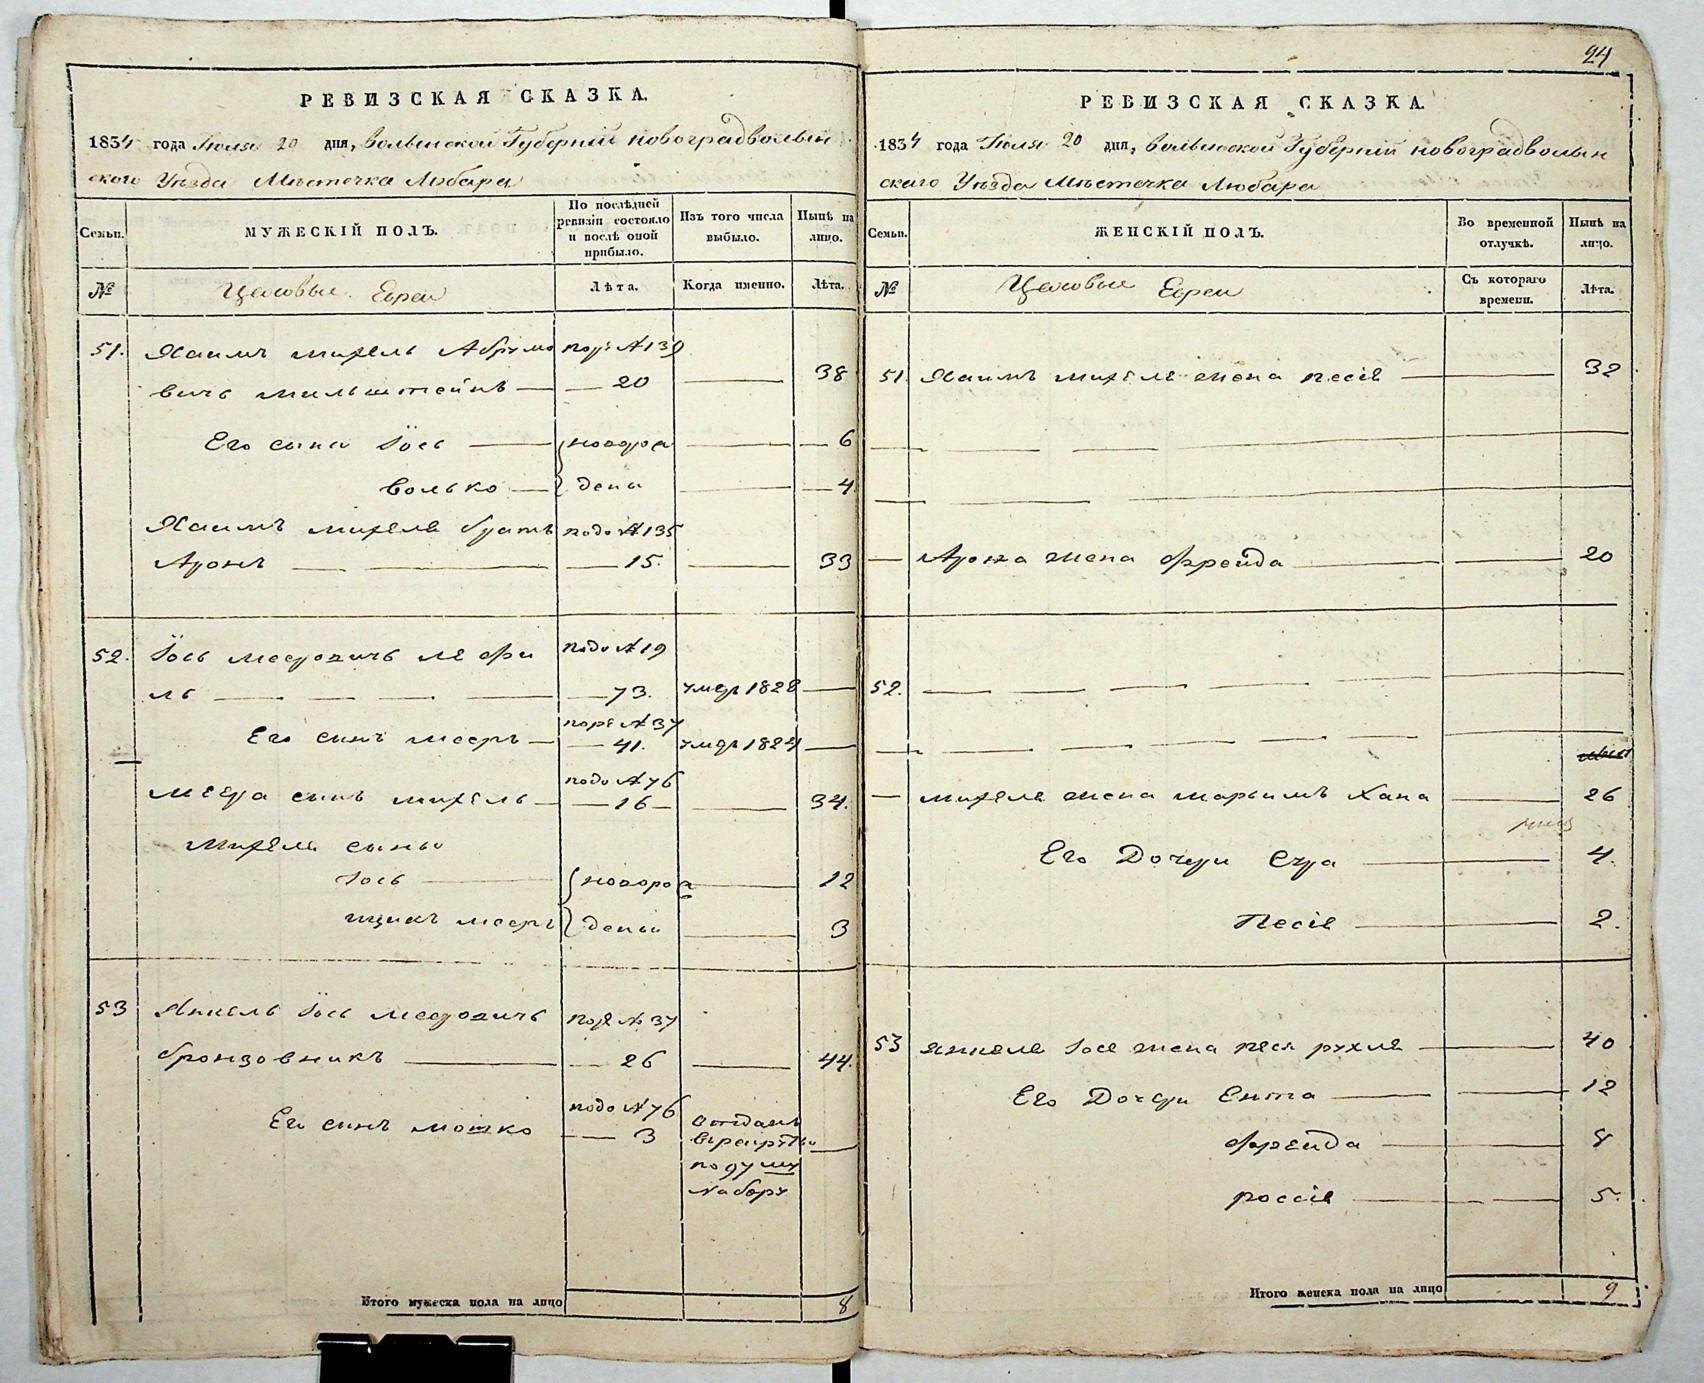 РЕВИЗСКАЯ СКАЗКА.
1834 года Июля 20 дня, Волынской Губерніи Новоградволын
ского Уѣзда Мѣстечка Любара
Семьи.
МУЖЕСКІЙ ПОЛЪ.
По послѣдней
ревизіи состояло
и послѣ оной
прибыло.
Изъ того числа
выбыло.
Нынѣ на
лицо.
№
Евреи
Лѣта.
Когда именно.
Лѣта.
51. Хаимъ Михель Абрумо
вичъ Мильштейнъ — 20 — 38
Его сыны Іось — новоро — 6
Волько — дены — 4
Хаимъ Михеля братъ подъ № 135
Аронъ — 15. — 33
52. Іось Меерович
ль — 73. умеръ 1828 —
Его сынъ Мееръ — 41. умеръ 1824 —
подъ № 76
Меера сынъ Михель — 16 — 34.
Михеля сыны
Іось — новоро — 12
Ицикъ Мееръ дены — 3
53 Янкель Іось Меерович № 37
бронзовникъ — 26 — 44.
подъ № 76
Его сынъ Мошко — 3 отданъ
въ рекруты —
по 97
набору
Итого мужеска пола на лицо 8
24
РЕВИЗСКАЯ СКАЗКА.
1834 года Июля 20 дня, Волынской Губерніи Новоградволын
скаго Уѣзда Мѣстечка Любара
Семьи.
ЖЕНСКІЙ ПОЛЪ.
Во временной
отлучкѣ.
Нынѣ на
лицо.
№
Евреи
Съ котораго
времени.
Лѣта.
51. Хаимъ Михеля жена Песія — 32
— Арона жена Фрейда — 20
52.
— Михеля жена Марьимъ Хана — 26
Его Дочери Сура — 4.
Песія — 2.
53 Янкеля Іося жена Песя Рухля — 40
Его Дочери Ента — 12
Фрейда — 8
Россія — 5.
Итого женска пола на лицо 9